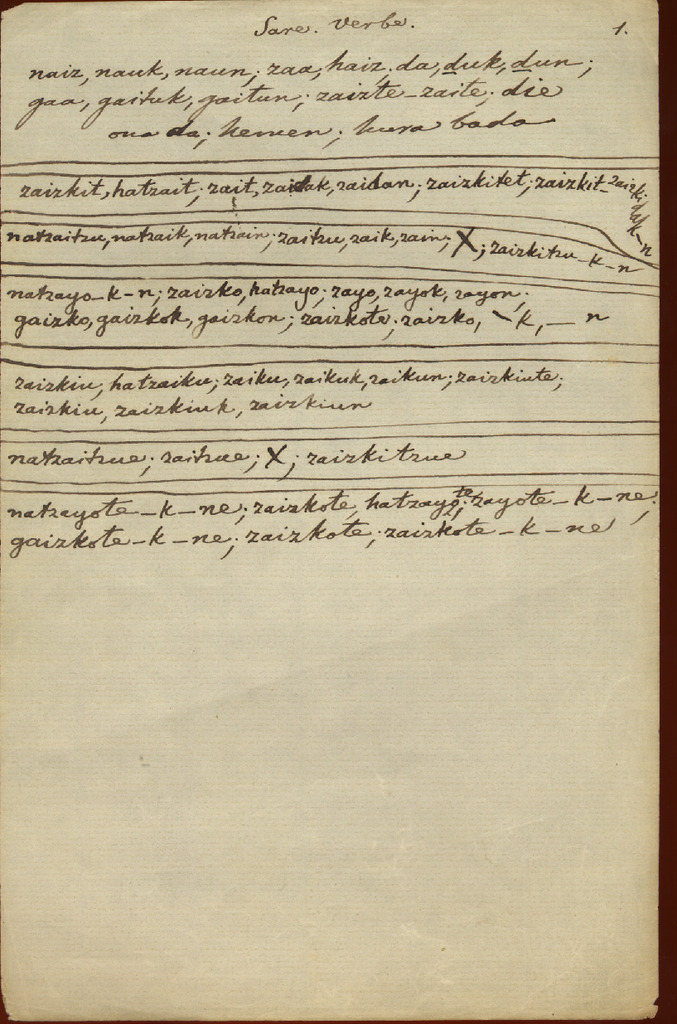 Sare. Verbe. 1.
naiz, nauk, naun; zaa, haiz; da, duk, dun;
gaa, gaituk, gaitun; zaizte - zaite; die
ona da; hemen; hura bada
zaizkit, hatzait; zait, zaidak, zaidan; zaizkitet; zaizkit - zaizkidak - n
natzaitzu, natzaik, natzain; zaitzu, zaik, zain; X; zaizkitzu - k - n
natzayo - k - n; zaizko, hatzayo; zayo, zayok, zayon;
gaizko, gaizkok, gaizkon; zaizkote; zaizko, - k, - n
zaizkiu, hatzaiku; zaiku, zaikuk, zaikun; zaizkiute;
zaizkiu, zaizkiuk, zaizkiun
natzaitzue; zaitzue; X; zaizkitzue
natzayote - k - ne; zaizkote, hatzayote; zayote - k - ne;
gaizkote - k - ne; zaizkote; zaizkote - k - ne